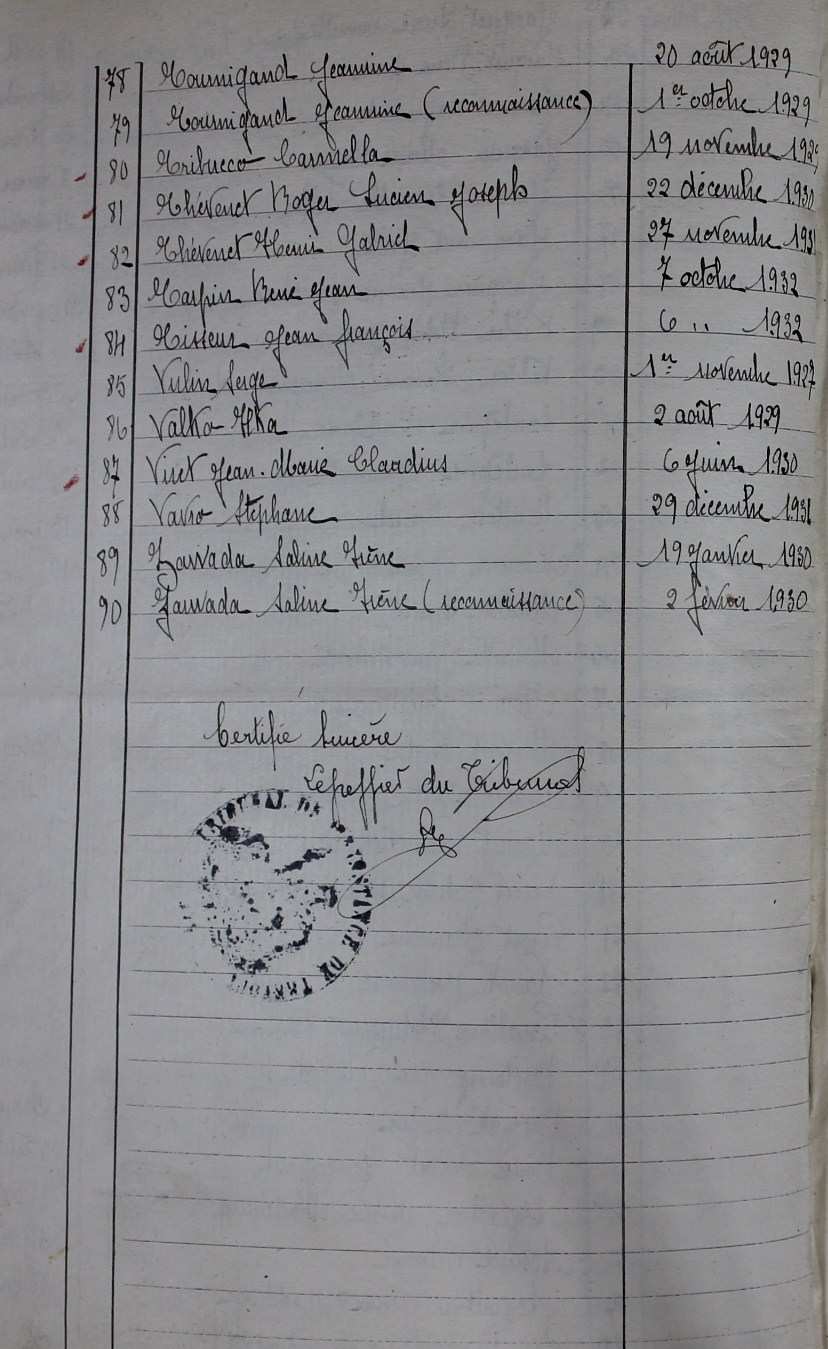 78 Tournigand Jeannine 20 août 1929
79 Tournigand Jeannine (reconnaissance) 1er octobre 1929
80 Tribucco Carmella 19 novembre 1929
81 Thévenet Roger Lucien Joseph 22 décembre 1930
82 Thévenet Henri Gabriel 27 novembre 1931
83 Tarpin René Jean 7 octobre 1932
84 Tisseur Jean François 6 " 1932
85 Vulin Serge 1er novembre 1927
86 Valko Ilka 2 août 1929
87 Viret Jean-Marie Claudius 6 juin 1930
88 Vavro Stéphane 29 décembre 1931
89 Zawada Sabine Irène 19 janvier 1930
90 Zawada Sabine Irène (reconnaissance) 2 février 1930
Certifié sincère
Le greffier du Tribunal
TRIBUNAL DE INSTANCE DE